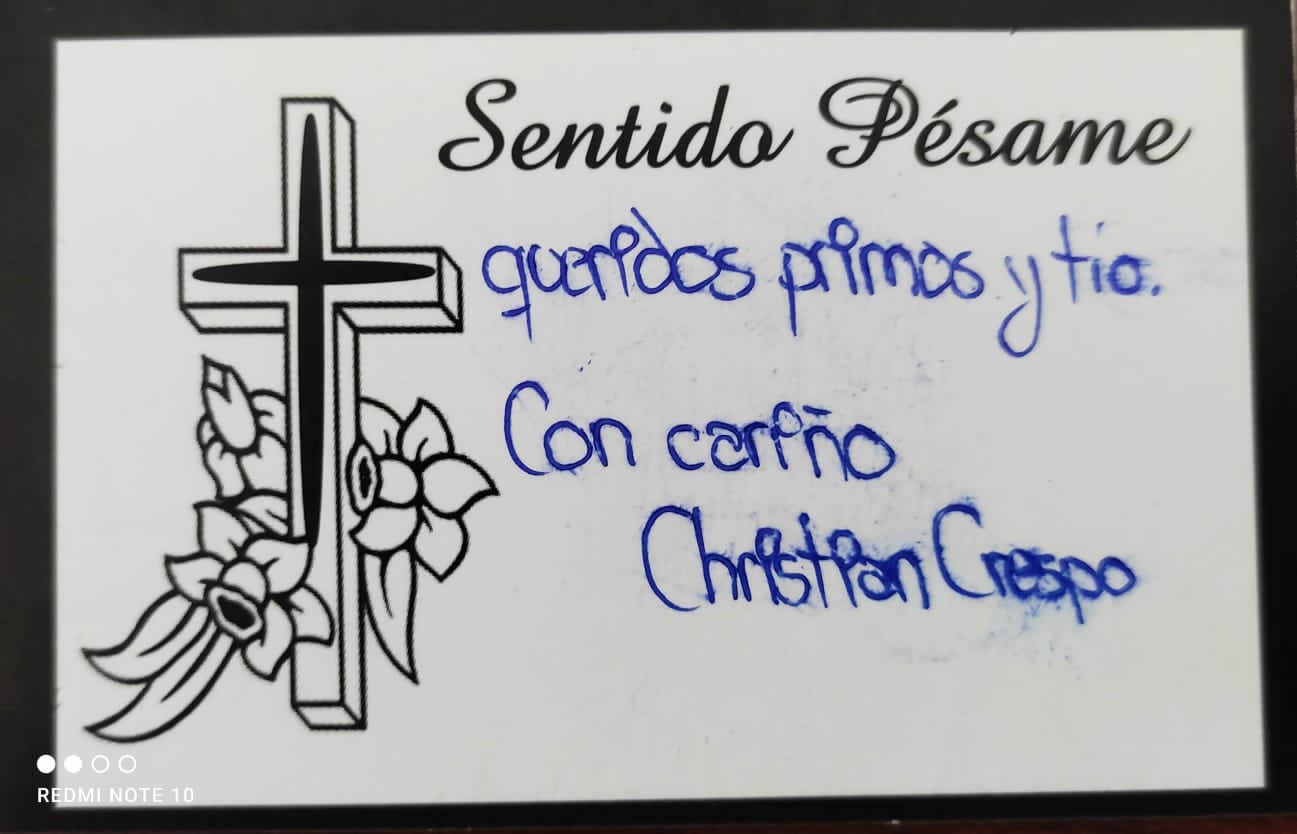 Sentido Pésame
queridos primos y tío.
Con cariño
Christian Crespo
REDMI NOTE 10